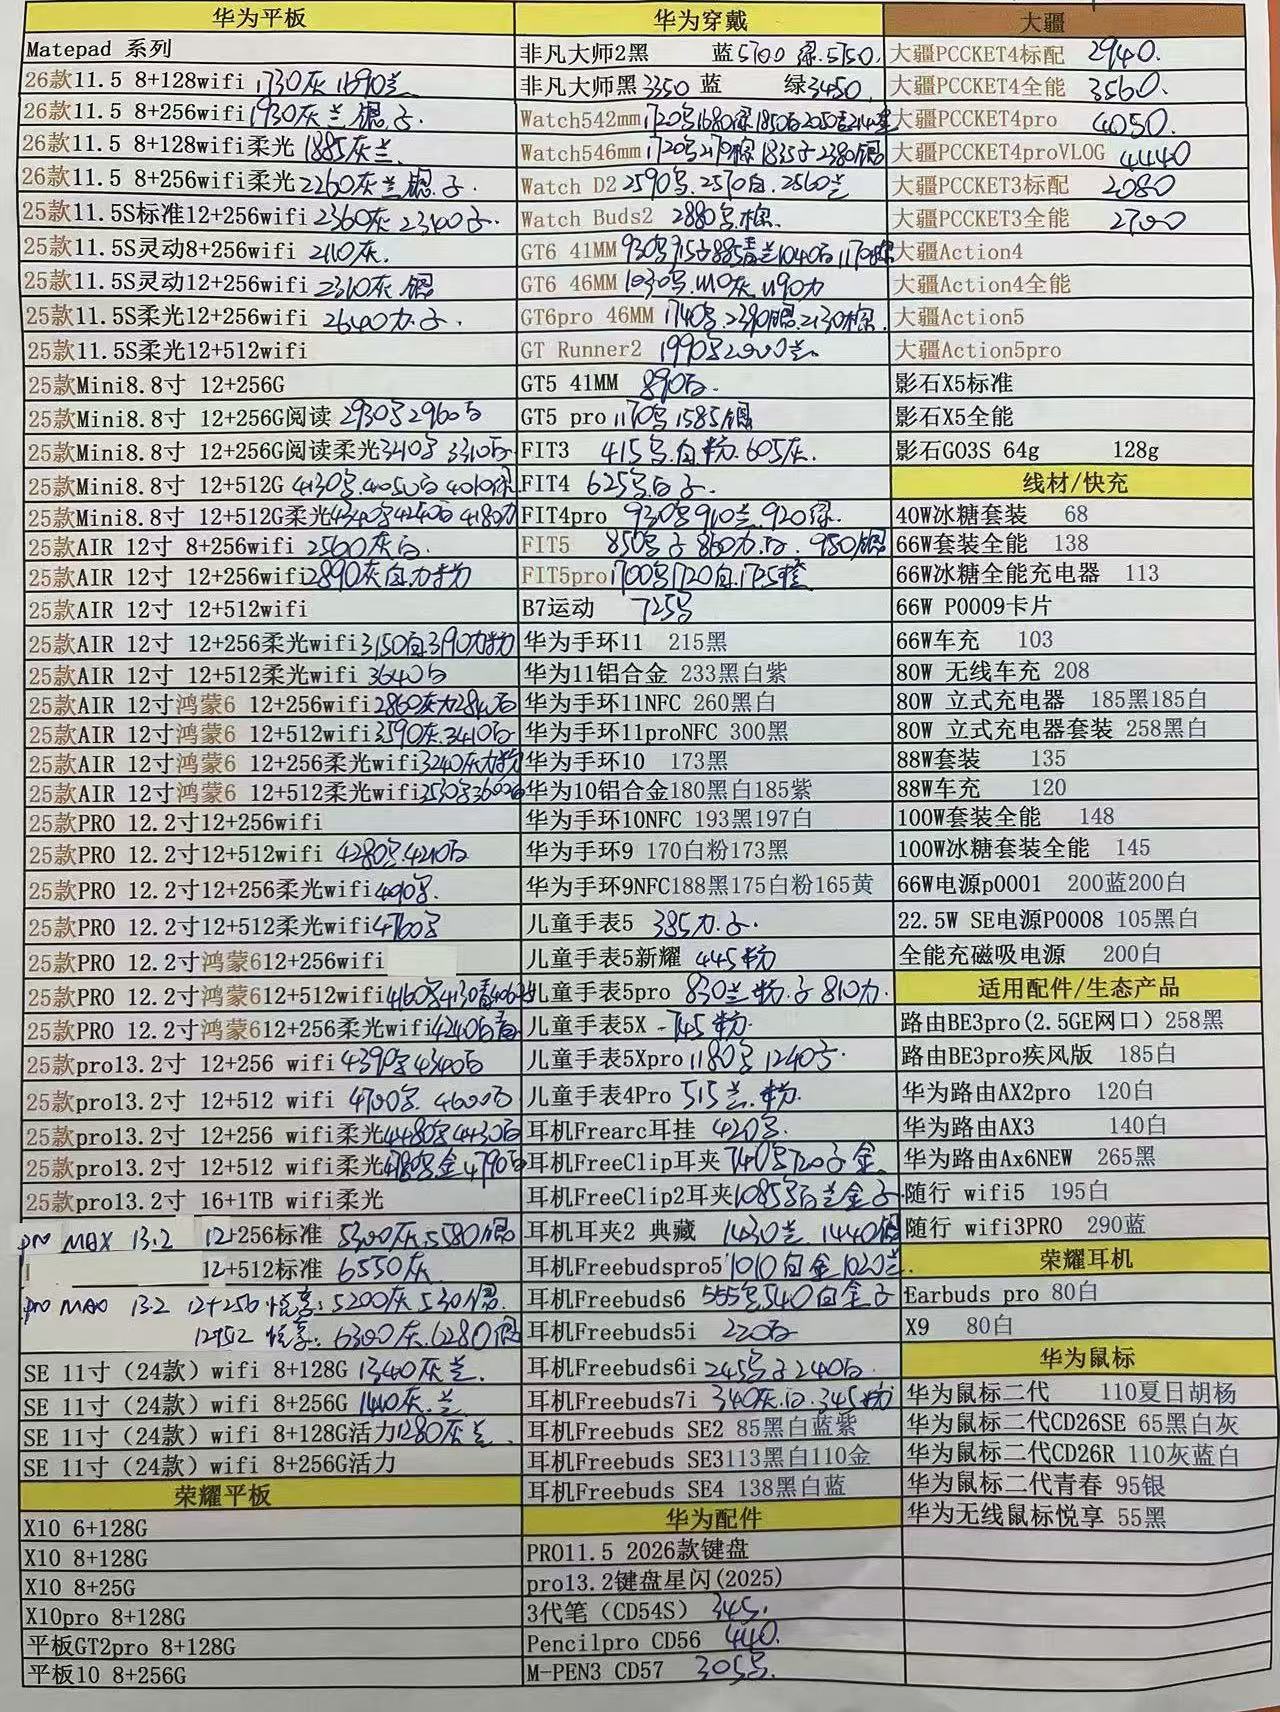 华为平板
Matepad 系列
26款11.5 8+128wifi 1730灰 1690兰
26款11.5 8+256wifi 1930灰兰银.子
26款11.5 8+128wifi柔光 1885灰兰.
26款11.5 8+256wifi柔光 2260灰兰银.子.
25款11.5S标准12+256wifi 2360灰 子.
25款11.5S灵动8+256wifi 2110灰.
25款11.5S灵动12+256wifi 2310灰.银
25款11.5S柔光12+256wifi 2640力.子.
25款11.5S柔光12+512wifi
25款Mini8.8寸 12+256G
25款Mini8.8寸 12+256G阅读 2930号2960白
25款Mini8.8寸 12+256G阅读柔光3410号 3310白
25款Mini8.8寸 12+512G 4130号.4050白 4010绿
25款Mini8.8寸 12+512G柔光4340号4240白 4180力
25款AIR 12寸 8+256wifi 2560灰白.
25款AIR 12寸 12+256wifi2890灰白.力粉
25款AIR 12寸 12+512wifi
25款AIR 12寸 12+256柔光wifi3150白3190力粉
25款AIR 12寸 12+512柔光wifi 3640白
25款AIR 12寸鸿蒙6 12+256wifi2860灰力 白
25款AIR 12寸鸿蒙6 12+512wifi3590灰.3410白
25款AIR 12寸鸿蒙6 12+256柔光wifi3240灰力粉
25款AIR 12寸鸿蒙6 12+512柔光wifi3530号3600白
25款PRO 12.2寸12+256wifi
25款PRO 12.2寸12+512wifi 4280号.4210白
25款PRO 12.2寸12+256柔光wifi4090号.
25款PRO 12.2寸12+512柔光wifi4760号
25款PRO 12.2寸鸿蒙612+256wifi
25款PRO 12.2寸鸿蒙612+512wifi4160号4130青
25款PRO 12.2寸鸿蒙612+256柔光wifi4240白青
25款pro13.2寸 12+256 wifi 4390号4340白
25款pro13.2寸 12+512 wifi 4700号. 4600白
25款pro13.2寸 12+256 wifi柔光4480号4430白
25款pro13.2寸 12+512 wifi柔光4780号金4790白
25款pro13.2寸 16+1TB wifi柔光
pro MAX 13.2 12+256标准 5300灰.5580银
12+512标准 6550灰
pro MAX 13.2 12+256 悦享: 5200灰 银.
12+512 悦享: 6300灰.6280银
SE 11寸（24款）wifi 8+128G 1340灰兰.
SE 11寸（24款）wifi 8+256G 灰.兰
SE 11寸（24款）wifi 8+128G活力1280灰兰.
SE 11寸（24款）wifi 8+256G活力
荣耀平板
X10 6+128G
X10 8+128G
X10 8+25G
X10pro 8+128G
平板GT2pro 8+128G
平板10 8+256G
华为穿戴
非凡大师2黑 蓝5700 绿.5750.
非凡大师黑3350 蓝 绿3450.
Watch542mm1720号1680绿1850白2050
Watch546mm1720号2170棕1835子2380银
Watch D2 2590号.2570白.2560兰
Watch Buds2 2880号.棕.
GT6 41MM 930号915子885青兰1040白1170棕
GT6 46MM 1030号.1110灰.1190力
GT6pro 46MM 1740号.2390银.2130棕.
GT Runner2 1990号2000兰.
GT5 41MM 890白.
GT5 pro1170号1585银
FIT3 415号.白.粉.605灰.
FIT4 625号白子.
FIT4pro 930号910兰.920绿.
FIT5 850号子860力.白. 950银
FIT5pro1700号1720白.1725橙
B7运动 725号
华为手环11 215黑
华为11铝合金 233黑白紫
华为手环11NFC 260黑白
华为手环11proNFC 300黑
华为手环10 173黑
华为10铝合金180黑白185紫
华为手环10NFC 193黑197白
华为手环9 170白粉173黑
华为手环9NFC188黑175白粉165黄
儿童手表5 385力.子.
儿童手表5新耀 445粉
儿童手表5pro 830兰.粉.子810力.
儿童手表5X 745粉.
儿童手表5Xpro1180号1240子.
儿童手表4Pro 515兰.粉.
耳机Frearc耳挂 420号.
耳机FreeClip耳夹740号720子金.
耳机FreeClip2耳夹1085号白兰金子.
耳机耳夹2 典藏 1430兰.1440银
耳机Freebudspro5 1010白金1020兰.
耳机Freebuds6 555号540白金子
耳机Freebuds5i 220白
耳机Freebuds6i 245号子240白.
耳机Freebuds7i 340灰.白.345粉
耳机Freebuds SE2 85黑白蓝紫
耳机Freebuds SE3113黑白110金
耳机Freebuds SE4 138黑白蓝
华为配件
PRO11.5 2026款键盘
pro13.2键盘星闪(2025)
3代笔（CD54S） 345.
Pencilpro CD56 440.
M-PEN3 CD57 305号.
大疆
大疆PCCKET4标配 2940.
大疆PCCKET4全能 3560.
大疆PCCKET4pro 4050.
大疆PCCKET4proVLOG 4440
大疆PCCKET3标配 2080
大疆PCCKET3全能 2700
大疆Action4
大疆Action4全能
大疆Action5
大疆Action5pro
影石X5标准
影石X5全能
影石GO3S 64g 128g
线材/快充
40W冰糖套装 68
66W套装全能 138
66W冰糖全能充电器 113
66W P0009卡片
66W车充 103
80W 无线车充 208
80W 立式充电器 185黑185白
80W 立式充电器套装 258黑白
88W套装 135
88W车充 120
100W套装全能 148
100W冰糖套装全能 145
66W电源p0001 200蓝200白
22.5W SE电源P0008 105黑白
全能充磁吸电源 200白
适用配件/生态产品
路由BE3pro(2.5GE网口）258黑
路由BE3pro疾风版 185白
华为路由AX2pro 120白
华为路由AX3 140白
华为路由Ax6NEW 265黑
随行 wifi5 195白
随行 wifi3PRO 290蓝
荣耀耳机
Earbuds pro 80白
X9 80白
华为鼠标
华为鼠标二代 110夏日胡杨
华为鼠标二代CD26SE 65黑白灰
华为鼠标二代CD26R 110灰蓝白
华为鼠标二代青春 95银
华为无线鼠标悦享 55黑